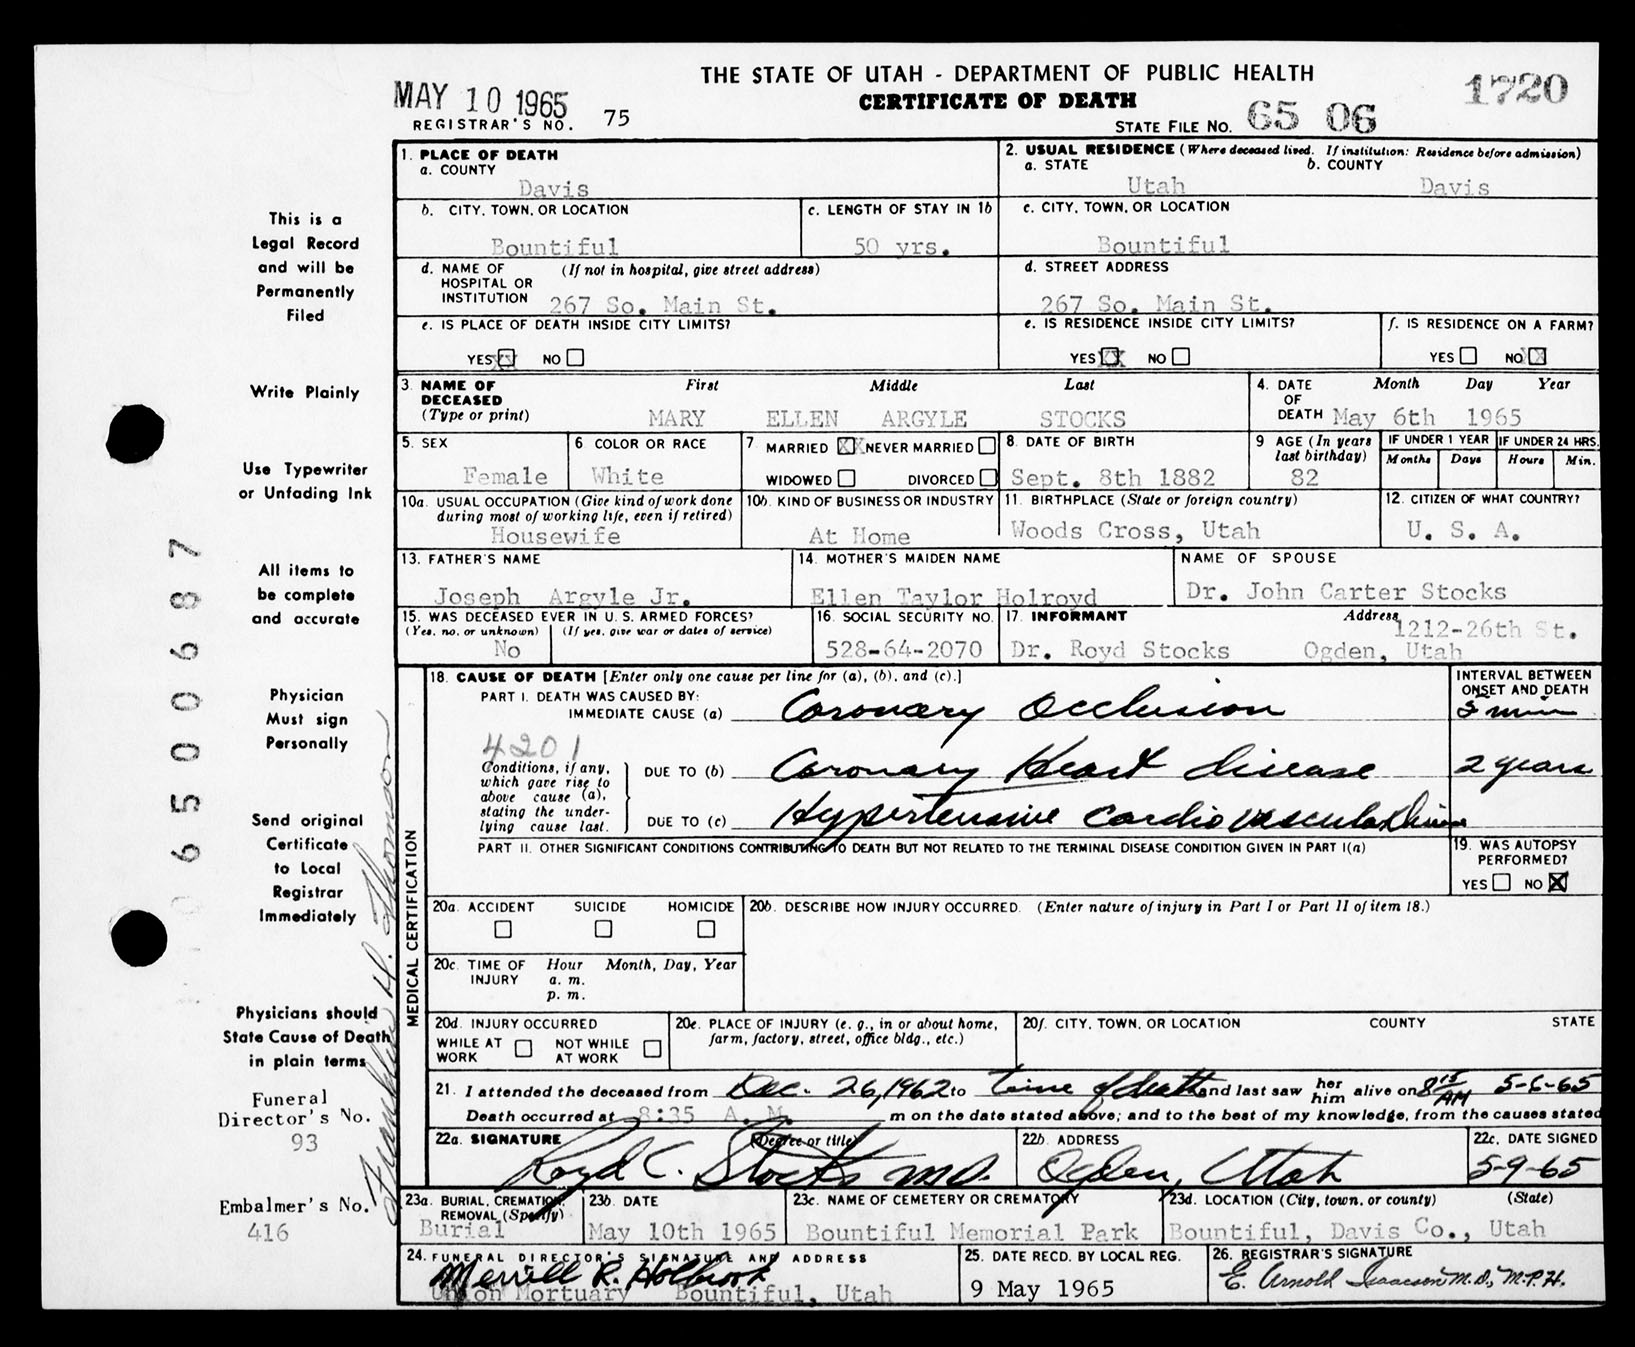 THE STATE OF UTAH - DEPARTMENT OF PUBLIC HEALTH
CERTIFICATE OF DEATH
1720
MAY 10 1965
REGISTRAR'S NO. 75
STATE FILE NO. 65 06
1. PLACE OF DEATH
a. COUNTY
Davis
2. USUAL RESIDENCE (Where deceased lived. If institution: Residence before admission)
a. STATE b. COUNTY
Utah Davis
b. CITY, TOWN, OR LOCATION
Bountiful
c. LENGTH OF STAY IN 1b
50 yrs.
c. CITY, TOWN, OR LOCATION
Bountiful
d. NAME OF (If not in hospital, give street address)
HOSPITAL OR
INSTITUTION 267 So. Main St.
d. STREET ADDRESS
267 So. Main St.
e. IS PLACE OF DEATH INSIDE CITY LIMITS?
YES XX NO
e. IS RESIDENCE INSIDE CITY LIMITS?
YES XX NO
f. IS RESIDENCE ON A FARM?
YES NO XX
3. NAME OF DECEASED (Type or print)
First Middle Last
MARY ELLEN ARGYLE STOCKS
4. DATE OF DEATH
Month Day Year
May 6th 1965
5. SEX
Female
6 COLOR OR RACE
White
7. MARRIED XX NEVER MARRIED
WIDOWED DIVORCED
8. DATE OF BIRTH
Sept. 8th 1882
9 AGE (In years last birthday)
82
IF UNDER 1 YEAR
Months Days
IF UNDER 24 HRS.
Hours Min.
10a. USUAL OCCUPATION (Give kind of work done during most of working life, even if retired)
Housewife
10b. KIND OF BUSINESS OR INDUSTRY
At Home
11. BIRTHPLACE (State or foreign country)
Woods Cross, Utah
12. CITIZEN OF WHAT COUNTRY?
U. S. A.
13. FATHER'S NAME
Joseph Argyle Jr.
14. MOTHER'S MAIDEN NAME
Ellen Taylor Holroyd
NAME OF SPOUSE
Dr. John Carter Stocks
15. WAS DECEASED EVER IN U. S. ARMED FORCES?
(Yes, no, or unknown) (If yes, give war or dates of service)
No
16. SOCIAL SECURITY NO.
528-64-2070
17. INFORMANT Address
1212-26th St.
Dr. Royd Stocks Ogden, Utah
MEDICAL CERTIFICATION
18. CAUSE OF DEATH [Enter only one cause per line for (a), (b), and (c).]
INTERVAL BETWEEN ONSET AND DEATH
PART I. DEATH WAS CAUSED BY:
IMMEDIATE CAUSE (a) Coronary Occlusion 5 min
4201
Conditions, if any, which gave rise to above cause (a), stating the underlying cause last.
DUE TO (b) Coronary Heart disease 2 years
DUE TO (c) Hypertensive cardiovascular Disease
PART II. OTHER SIGNIFICANT CONDITIONS CONTRIBUTING TO DEATH BUT NOT RELATED TO THE TERMINAL DISEASE CONDITION GIVEN IN PART I(a)
19. WAS AUTOPSY PERFORMED?
YES NO X
20a. ACCIDENT SUICIDE HOMICIDE
20b. DESCRIBE HOW INJURY OCCURRED. (Enter nature of injury in Part I or Part II of item 18.)
20c. TIME OF INJURY Hour Month, Day, Year
a. m.
p. m.
20d. INJURY OCCURRED
WHILE AT WORK NOT WHILE AT WORK
20e. PLACE OF INJURY (e. g., in or about home, farm, factory, street, office bldg., etc.)
20f. CITY, TOWN, OR LOCATION COUNTY STATE
21. I attended the deceased from Dec. 26, 1962 to time of death and last saw her him alive on 8 15 AM 5-6-65
Death occurred at 8:35 A. M. m on the date stated above; and to the best of my knowledge, from the causes stated
22a. SIGNATURE (Degree or title)
Royd C. Stocks M.D.
22b. ADDRESS
Ogden, Utah
22c. DATE SIGNED
5-9-65
23a. BURIAL, CREMATION, REMOVAL (Specify)
Burial
23b. DATE
May 10th 1965
23c. NAME OF CEMETERY OR CREMATORY
Bountiful Memorial Park
23d. LOCATION (City, town, or county) (State)
Bountiful, Davis Co., Utah
24. FUNERAL DIRECTOR'S SIGNATURE AND ADDRESS
Merrill R. Holbrook
Union Mortuary Bountiful, Utah
25. DATE RECD. BY LOCAL REG.
9 May 1965
26. REGISTRAR'S SIGNATURE
E. Arnold Isaacson M.D., M.P.H.
This is a
Legal Record
and will be
Permanently
Filed
Write Plainly
Use Typewriter
or Unfading Ink
All items to
be complete
and accurate
Physician
Must sign
Personally
Send original
Certificate
to Local
Registrar
Immediately
Physicians should
State Cause of Death
in plain terms
Funeral
Director's No.
93
Embalmer's No.
416
Franklin H. Thomson
0 6 5 0 0 6 8 7